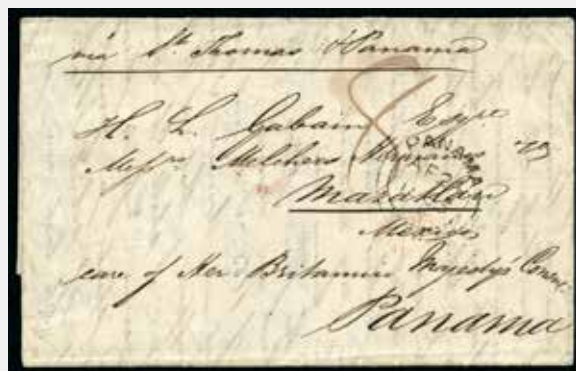 via St. Thomas & Panama
8
H. L. Gabain Esqre
Messrs Melchers
PANAMA
Mazatlan
Mexico
care of Her Britannic Majesty's Consul
Panama